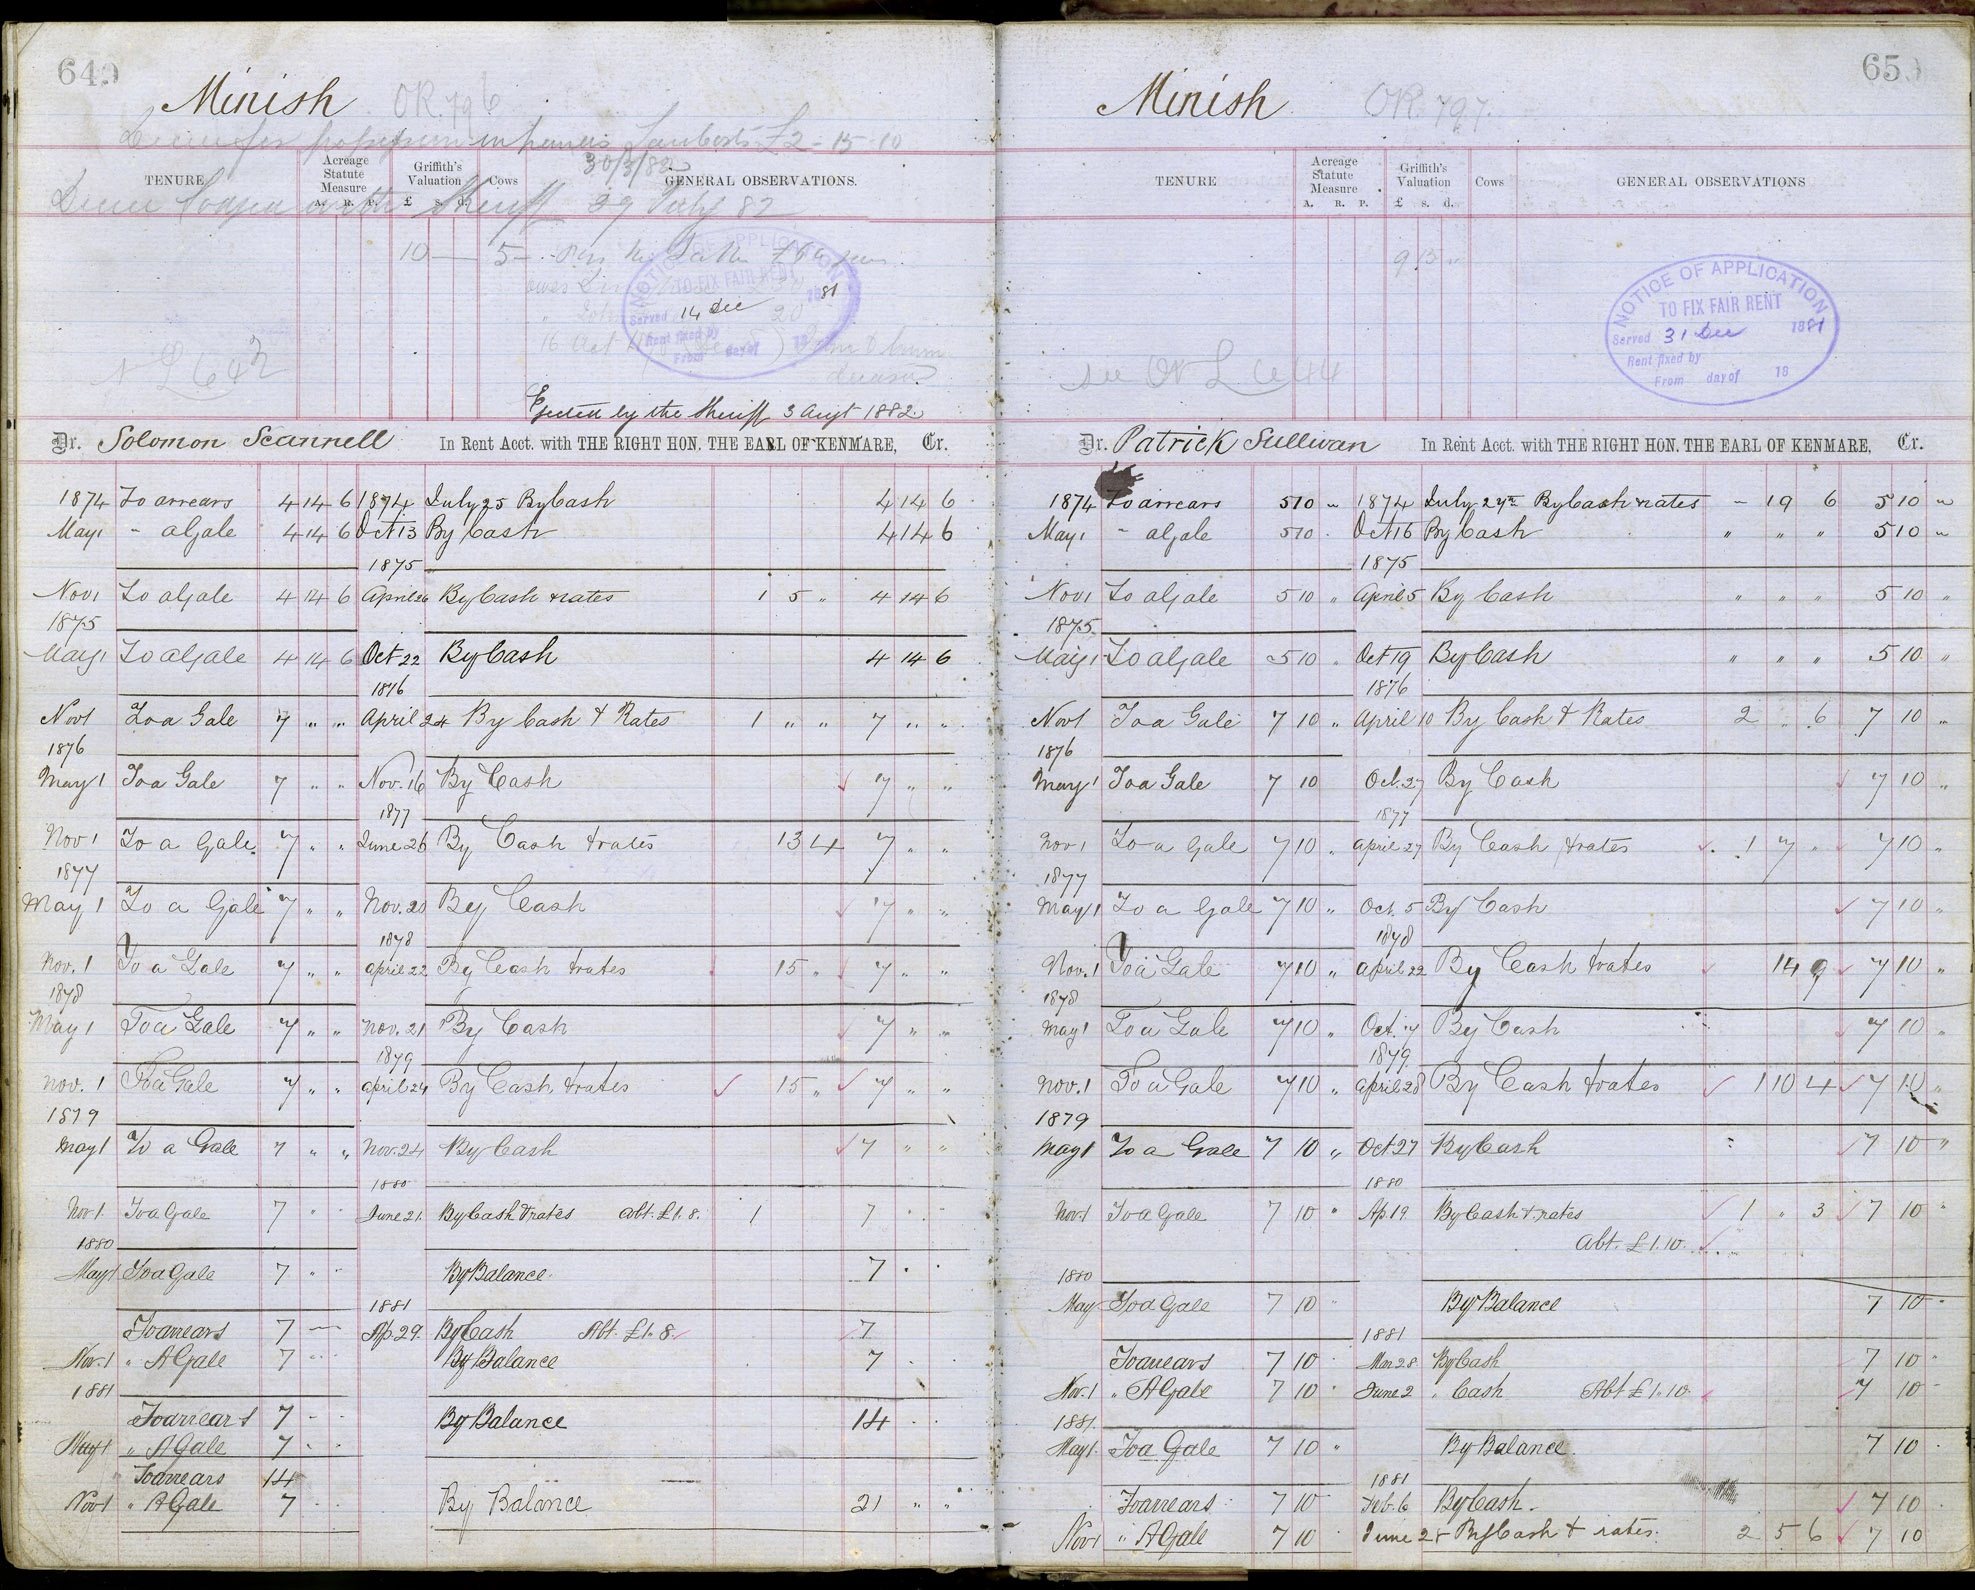 640
Minish OR. 796
Lamberts £2-15-10
30/3/82
TENURE Acreage Statute Measure A. R. P. Griffith's Valuation £ s. d. Cows GENERAL OBSERVATIONS.
Sheriff 29 July 82
10 — 5
NOTICE OF APPLICATION
TO FIX FAIR RENT
Served 14 Dec 1881
Rent fixed by
From day of 18
16 Oct
N L 642
Ejected by the Sheriff 3 Augt 1882.
Dr. Solomon Scannell In Rent Acct. with THE RIGHT HON. THE EARL OF KENMARE, Cr.
1874 To arrears 4 14 6 1874 July 25 By Cash 4 14 6
May 1 " a Gale 4 14 6 Oct 13 By Cash 4 14 6
1875
Nov 1 To a Gale 4 14 6 April 26 By Cash & rates 1 5 " 4 14 6
1875
May 1 To a Gale 4 14 6 Oct 22 By Cash 4 14 6
1876
Nov 1 To a Gale 7 " " April 24 By Cash & Rates 1 " " 7 " "
1876
May 1 To a Gale 7 " " Nov. 16 By Cash 7 " "
1877
Nov 1 To a Gale 7 " " June 26 By Cash & rates 13 4 7 " "
1877
May 1 To a Gale 7 " " Nov. 20 By Cash 7 " "
1878
Nov. 1 To a Gale 7 " " April 22 By Cash & rates 15 " 7 " "
1878
May 1 To a Gale 7 " " Nov. 21 By Cash 7 " "
1879
Nov. 1 To a Gale 7 " " April 24 By Cash & rates 15 " 7 " "
1879
May 1 To a Gale 7 " " Nov. 24 By Cash 7 " "
1880
Nov 1. To a Gale 7 " " June 21. By Cash & rates Abt. £1. 8. 1 7 " "
1880
May 1 To a Gale 7 " " By Balance. 7 " "
1881
To arrears 7 — Ap. 29. By Cash Abt. £1. 8. 7
Nov. 1 " A Gale 7 " " By Balance 7 " "
1881
To arrears 7 " " By Balance 14 " "
May 1 " A Gale 7 " "
To arrears 14
Nov 1 " A Gale 7 " " By Balance 21 " "
65
Minish OR. 797.
TENURE Acreage Statute Measure A. R. P. Griffith's Valuation £ s. d. Cows GENERAL OBSERVATIONS
9 15 "
NOTICE OF APPLICATION
TO FIX FAIR RENT
Served 31 Dec 1881
Rent fixed by
From day of 18
see N L 644
Dr. Patrick Sullivan In Rent Acct. with THE RIGHT HON. THE EARL OF KENMARE, Cr.
1874 To arrears 5 10 " 1874 July 27th By Cash & rates - 19 6 5 10 "
May 1 " a Gale 5 10 " Oct 16 By Cash " " " 5 10 "
1875
Nov 1 To a Gale 5 10 " April 5 By Cash " " " 5 10 "
1875
May 1 To a Gale 5 10 " Oct 19 By Cash " " " 5 10 "
1876
Nov 1 To a Gale 7 10 " April 10 By Cash & Rates 2 " 6 7 10 "
1876
May 1 To a Gale 7 10 Oct. 27 By Cash 7 10 "
1877
Nov 1 To a Gale 7 10 " April 27 By Cash & rates 1 7 " 7 10 "
1877
May 1 To a Gale 7 10 " Oct. 5 By Cash 7 10 "
1878
Nov. 1 To a Gale 7 10 " April 22 By Cash & rates 14 9 7 10 "
1878
May 1 To a Gale 7 10 " Oct. 7 By Cash 7 10 "
1879
Nov. 1 To a Gale 7 10 " April 28 By Cash & rates 1 10 4 7 10 "
1879
May 1 To a Gale 7 10 " Oct 27 By Cash 7 10 "
1880
Nov. 1 To a Gale 7 10 " Ap. 19 By Cash & rates 1 " 3 7 10 "
Abt. £1. 10.
1880
May To a Gale 7 10 " By Balance 7 10 "
1881
To arrears 7 10 " Mar 28. By Cash 7 10 "
Nov. 1 " A Gale 7 10 " June 2 " Cash Abt £1. 10. 7 10 "
1881.
May 1. To a Gale 7 10 " By Balance 7 10 "
1881
To arrears 7 10 Feb. 6 By Cash. 7 10 "
Nov 1 " A Gale 7 10 June 25 By Cash & rates. 2 5 6 7 10